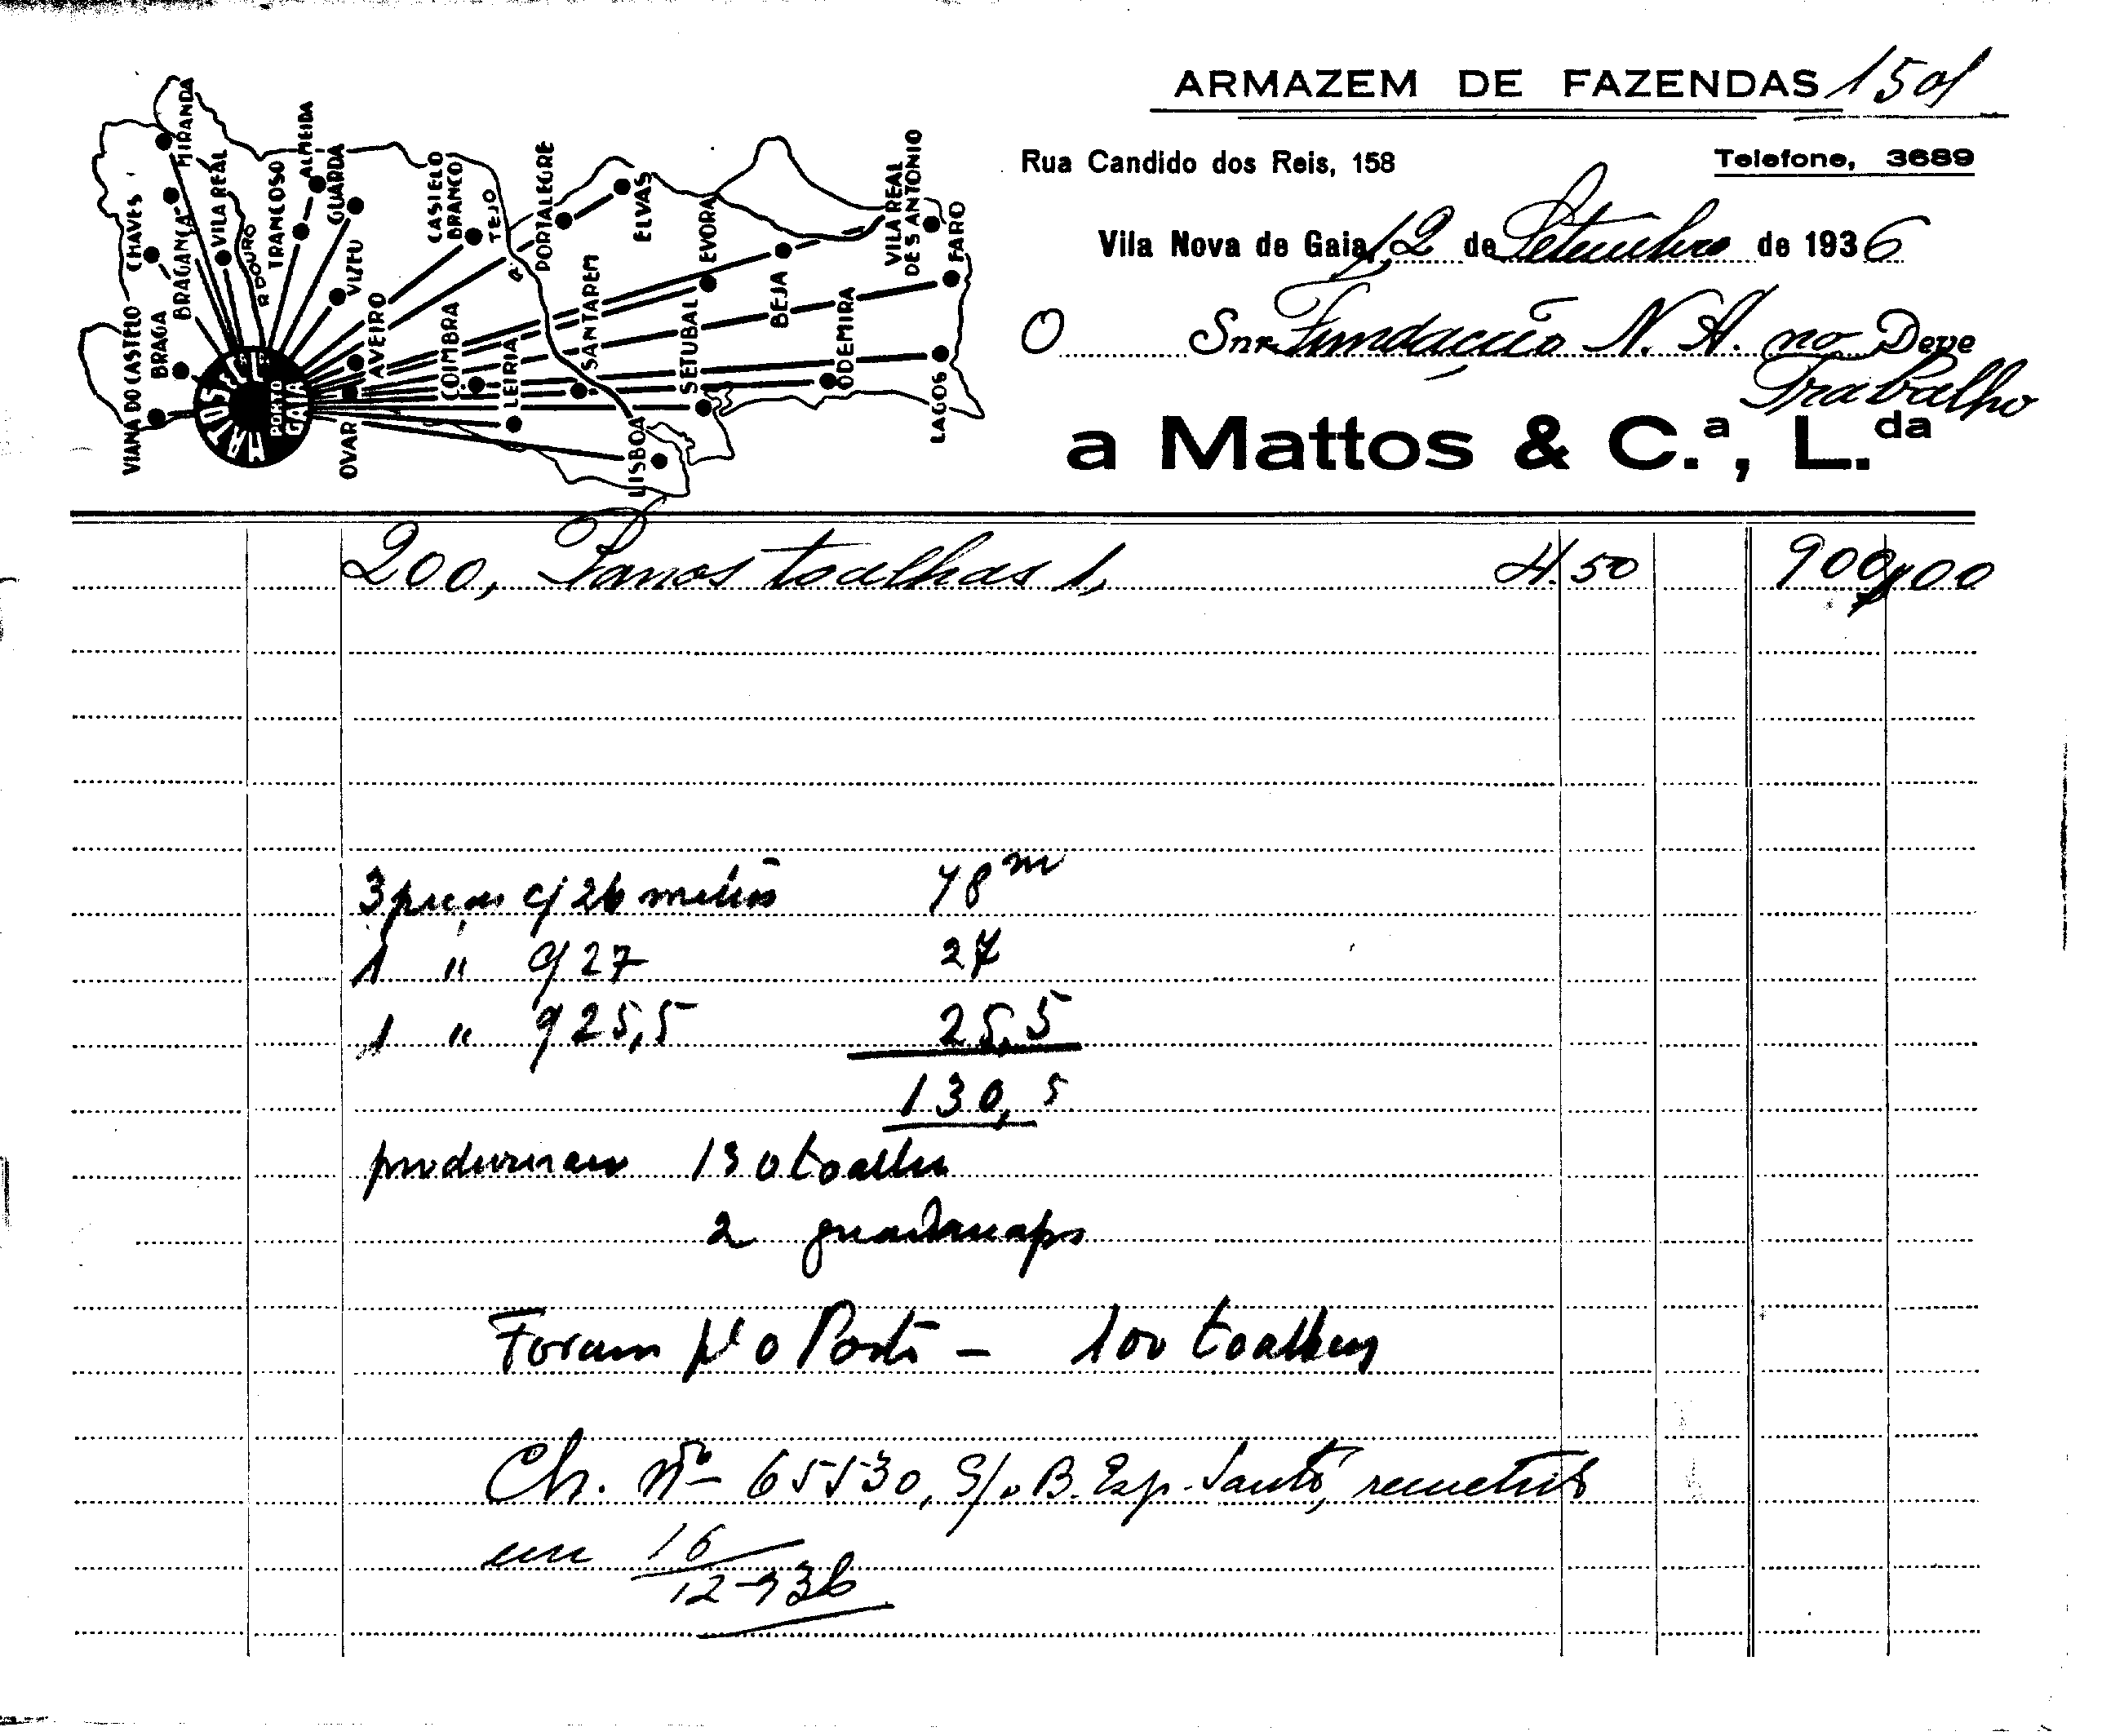 ARMAZEM DE FAZENDAS 1501
Rua Candido dos Reis, 158 Telefone, 3689
Vila Nova de Gaia, 12 de Setembro de 1936
O Snr. Fundação N. A. no Deve
Trabalho
a Mattos & C.ª, L.da
MIRANDA
CHAVES
BRAGANÇA
VILA REAL
R DOURO
TRANCOSO
ALMEIDA
GUARDA
VIZEU
CASTELO BRANCO
TEJO
R.
PORTALEGRE
ELVAS
EVORA
VILA REAL DE S ANTONIO
FARO
VIANA DO CASTELO
BRAGA
MATTOS & C.ª L.da
PORTO
GAIA
AVEIRO
OVAR
COIMBRA
LEIRIA
SANTAREM
LISBOA
SETUBAL
BEJA
ODEMIRA
LAGOS
200, Panos toalhas 1, 4.50 900$00
3 peças c/ 26 metros 78 m
1 " c/ 27 27
1 " c/ 25,5 25,5
130,5
produziram 130 toalhas
2 guardanapos
Foram p/ o Porto - 100 toalhas
Ch. nº 65530, S/o B. Esp. Santo, remetido
em 16/12-936